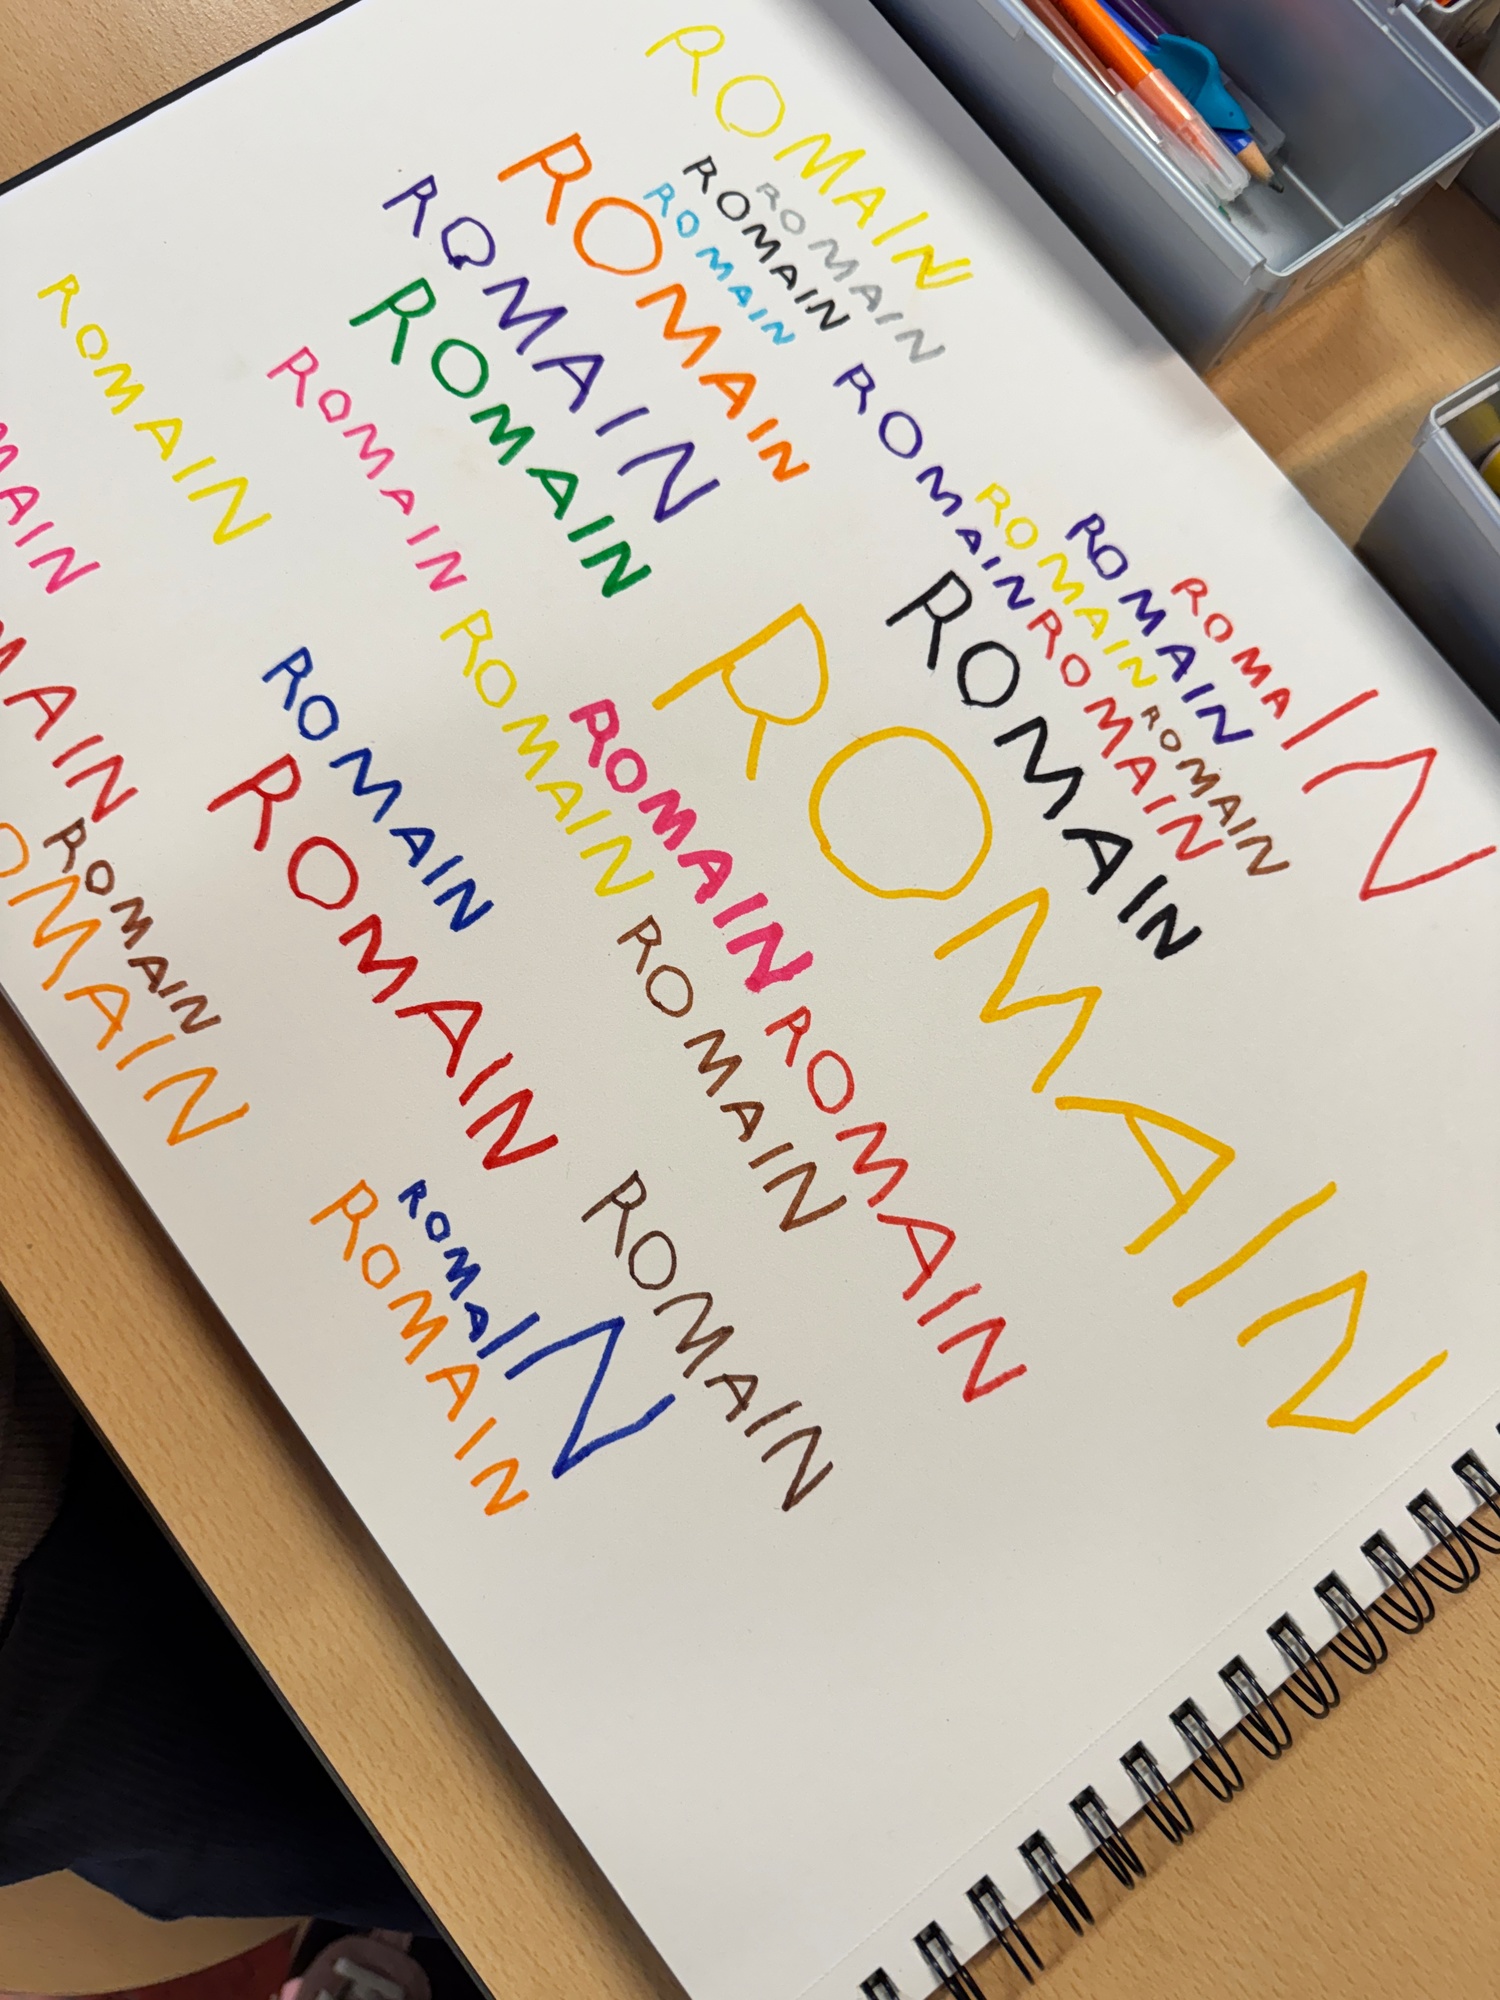 ROMAIN
ROMAIN
ROMAIN
ROMAIN
ROMAIN
ROMAIN
ROMAIN
ROMAIN
ROMAIN
MAIN
ROMAIN
ROMAIN
ROMAIN
ROMAIN
ROMAIN
ROMAIN
ROMAIN
ROMAIN
ROMAIN
ROMAIN
ROMAIN
ROMAIN
MAIN
ROMAIN
OMAIN
ROMAIN
ROMAIN
ROMAIN
ROMAIN
ROMAIN